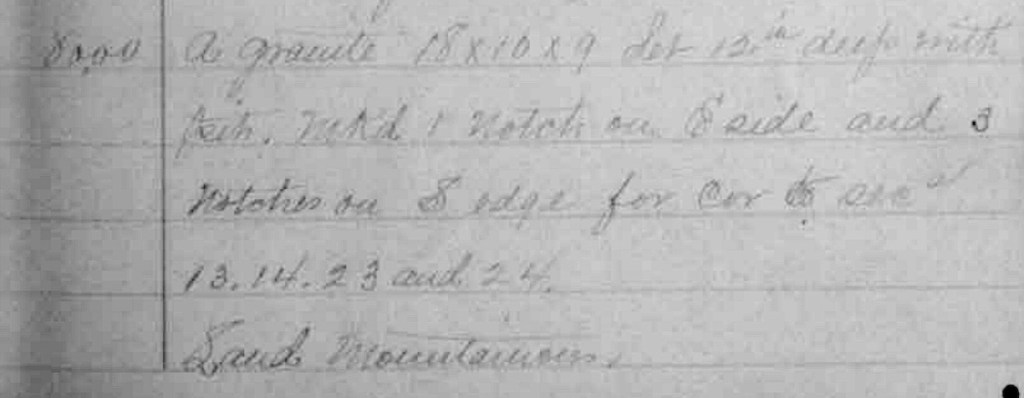 80.00 A granite 18 x 10 x 9 Set 12 in deep with
pits. Mk'd 1 Notch on E side and 3
Notches on S edge for Cor to secs
13.14.23 and 24.
Land Mountainous.